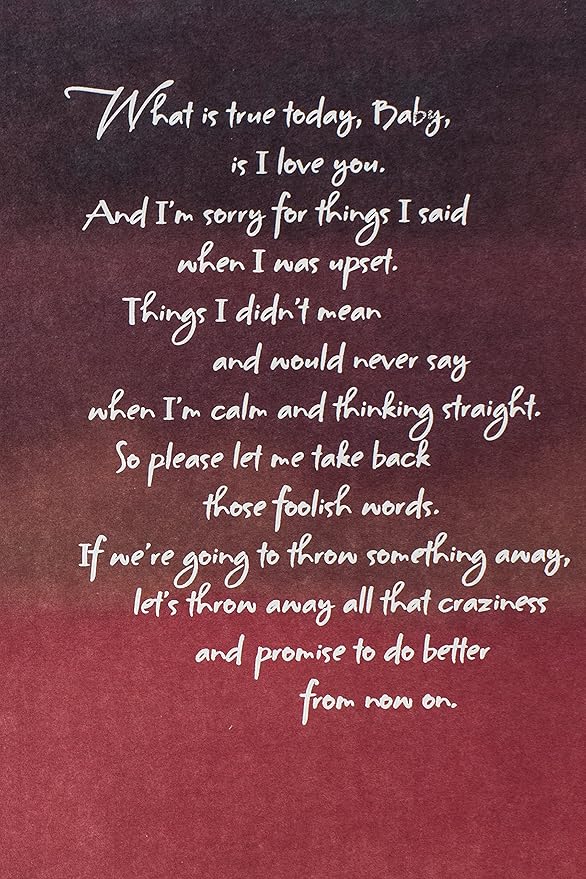 What is true today, Baby,
is I love you.
And I'm sorry for things I said
when I was upset.
Things I didn't mean
and would never say
when I'm calm and thinking straight.
So please let me take back
those foolish words.
If we're going to throw something away,
let's throw away all that craziness
and promise to do better
from now on.